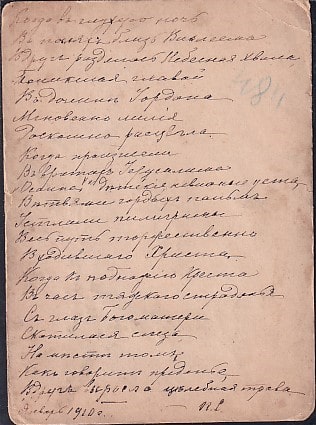 Когда въ глухую ночь
Въ поляхъ близь Вифлеема
Вдругъ раздалась Небесная хвала
Поникшая главой
Въ долинѣ Іордана
Мгновенно лилія
Роскошно расцвѣла.
Когда произнесли
Въ вратахъ Іерусалима
Осанна дѣтскія невинныя уста,
Вѣтвями гордыхъ пальмъ
Устлали пилигримы
Весь путь торжественно
Входившаго Христа.
Когда въ подножіи Креста
Въ часъ тяжкаго страданья
Съ глазъ Богоматери
Скатилася слеза
На мѣстѣ томъ,
Какъ говоритъ преданье,
Вдругъ выросла цѣлебная трава
1910 г. П. С.
484